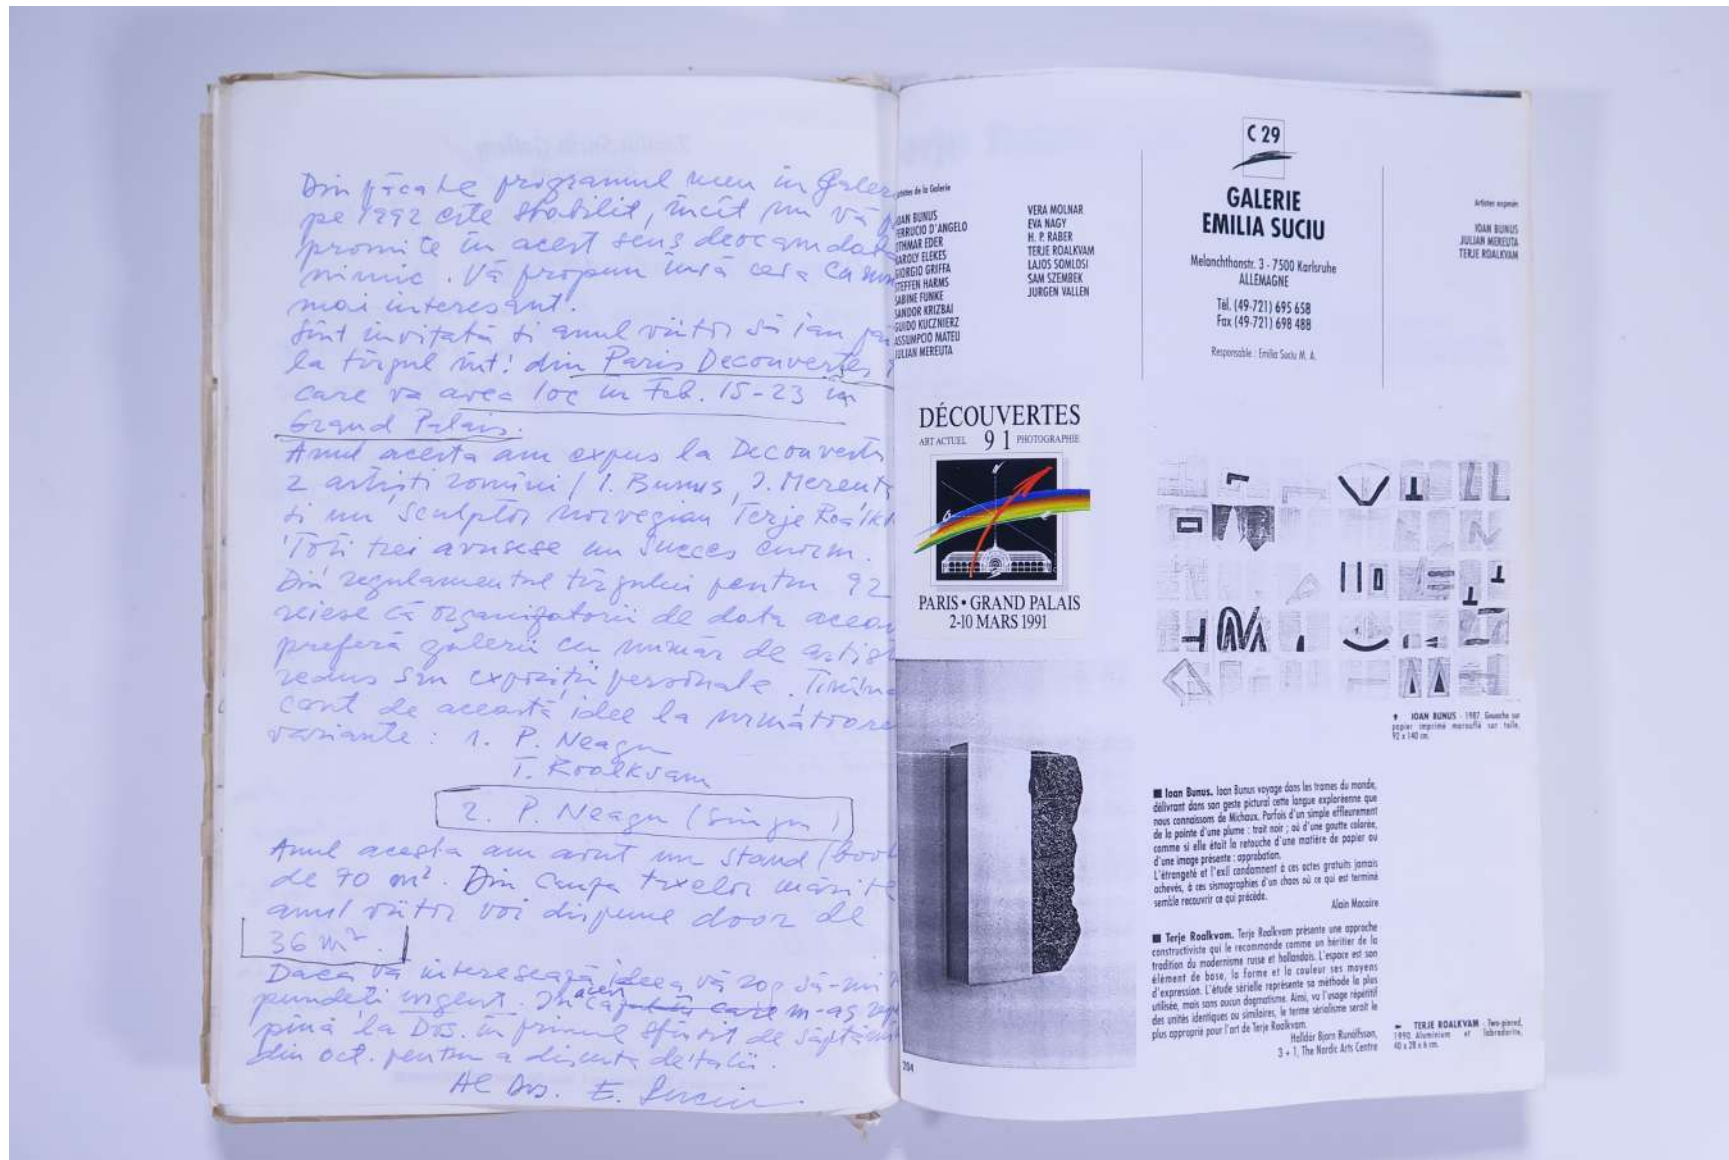 Din păcate programul meu în Galer
pe 1992 este stabilit, încît nu vă p
promite în acest sens deocamdată
nimic. Vă propun însă ceva ca
mai interesant.
Sînt invitată și anul viitor să iau pa
la tîrgul int! din Paris Decouvertes
care va avea loc în Feb. 15-23 in
Grand Palais.
Anul acesta am expus la Decouverts
2 artiști romîni / I. Bunus, J. Mereuta
și un sculptor norvegian Terje Roalk
Toți trei avusese un succes enorm.
Din regulamentul tîrgului pentru 92
reiese că organizatorii de data aceas
preferă galerii cu număr de artiș
redus sau expoziții personale. Tinînd
cont de această idee la următoare
variante: 1. P. Neagu
T. Roalkvam
2. P. Neagu (singur)
Anul acesta am avut un stand (boo
de 70 m². Din cauza taxelor mărite
anul viitor voi dispune doar de
36 m².
Dacă vă interesează ideea vă rog să-mi
pundeți urgent. În acest m-aș
pînă la Dvs. în primul sfîrșit de săptăm
din oct. pentru a discuta detalii.
Al Dvs. E. Suciu
C 29
GALERIE
EMILIA SUCIU
Melanchthonstr. 3 - 7500 Karlsruhe
ALLEMAGNE
Tél. (49-721) 695 658
Fax (49-721) 698 488
Responsable : Emilia Suciu M. A.
artistes de la Galerie
OAN BUNUS
FERRUCIO D'ANGELO
OTHMAR EDER
KAROLY ELEKES
GIORGIO GRIFFA
STEFFEN HARMS
SABINE FUNKE
SANDOR KRIZBAI
GUIDO KUCZNIERZ
ASSUMPCIO MATEU
JULIAN MEREUTA
VERA MOLNAR
EVA NAGY
H. P. RABER
TERJE ROALKVAM
LAJOS SOMLOSI
SAM SZEMBEK
JURGEN VALLEN
Artistes exposés
IOAN BUNUS
JULIAN MEREUTA
TERJE ROALKVAM
DÉCOUVERTES
ART ACTUEL 91 PHOTOGRAPHIE
PARIS • GRAND PALAIS
2-10 MARS 1991
IOAN BUNUS - 1987. Gouache sur
papier imprimé marouflé sur toile,
92 x 140 cm.
■ Ioan Bunus. Ioan Bunus voyage dans les trames du monde,
délivrant dans son geste pictural cette langue exploréenne que
nous connaissons de Michaux. Parfois d'un simple effleurement
de la pointe d'une plume : trait noir ; où d'une goutte colorée,
comme si elle était la retouche d'une matière de papier ou
d'une image présente : approbation.
L'étrangeté et l'exil condamnent à ces actes gratuits jamais
achevés, à ces sismographies d'un chaos où ce qui est terminé
semble recouvrir ce qui précède.
Alain Macaire
■ Terje Roalkvam. Terje Roalkvam présente une approche
constructiviste qui le recommande comme un héritier de la
tradition du modernisme russe et hollandais. L'espace est son
élément de base, la forme et la couleur ses moyens
d'expression. L'étude sérielle représente sa méthode la plus
utilisée, mais sans aucun dogmatisme. Ainsi, vu l'usage répétitif
des unités identiques ou similaires, le terme sérialisme serait le
plus approprié pour l'art de Terje Roalkvam.
Halldór Bjorn Runólfsson,
3 + 1, The Nordic Arts Centre
TERJE ROALKVAM - Two-pieced,
1990. Aluminium et labradorite,
40 x 28 x 6 cm.
204